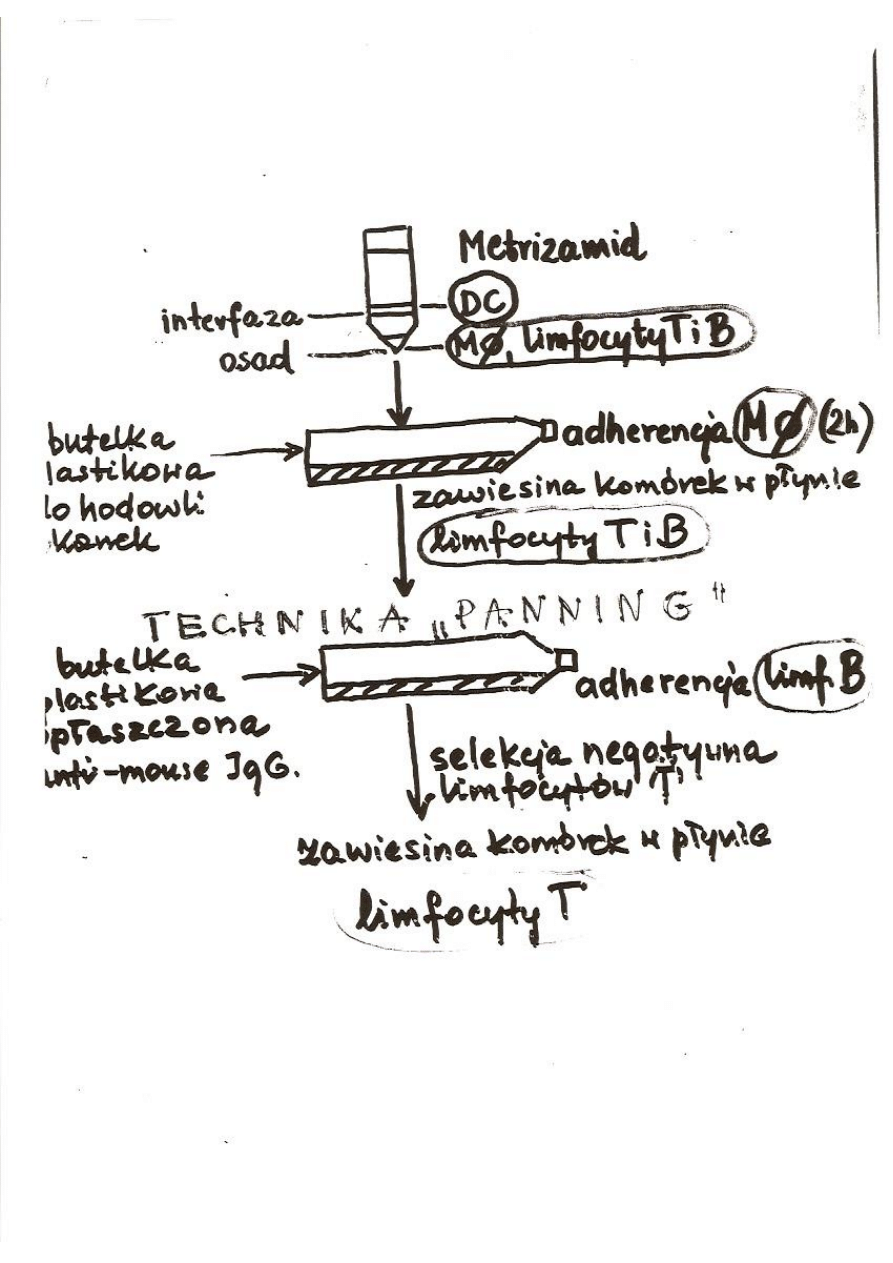 Metrizamid
DC
interfaza
MØ, limfocyty T i B
osad
butelka
lastikowa
lo hodowli
kanek
adherencja MØ (2h)
zawiesina komórek w płynie
limfocyty T i B
TECHNIKA „PANNING"
butelka
plastikowa
opłaszczona
anti-mouse IgG.
adherencja limf. B
selekcja negatywna
limfocytów T
zawiesina komórek w płynie
limfocyty T